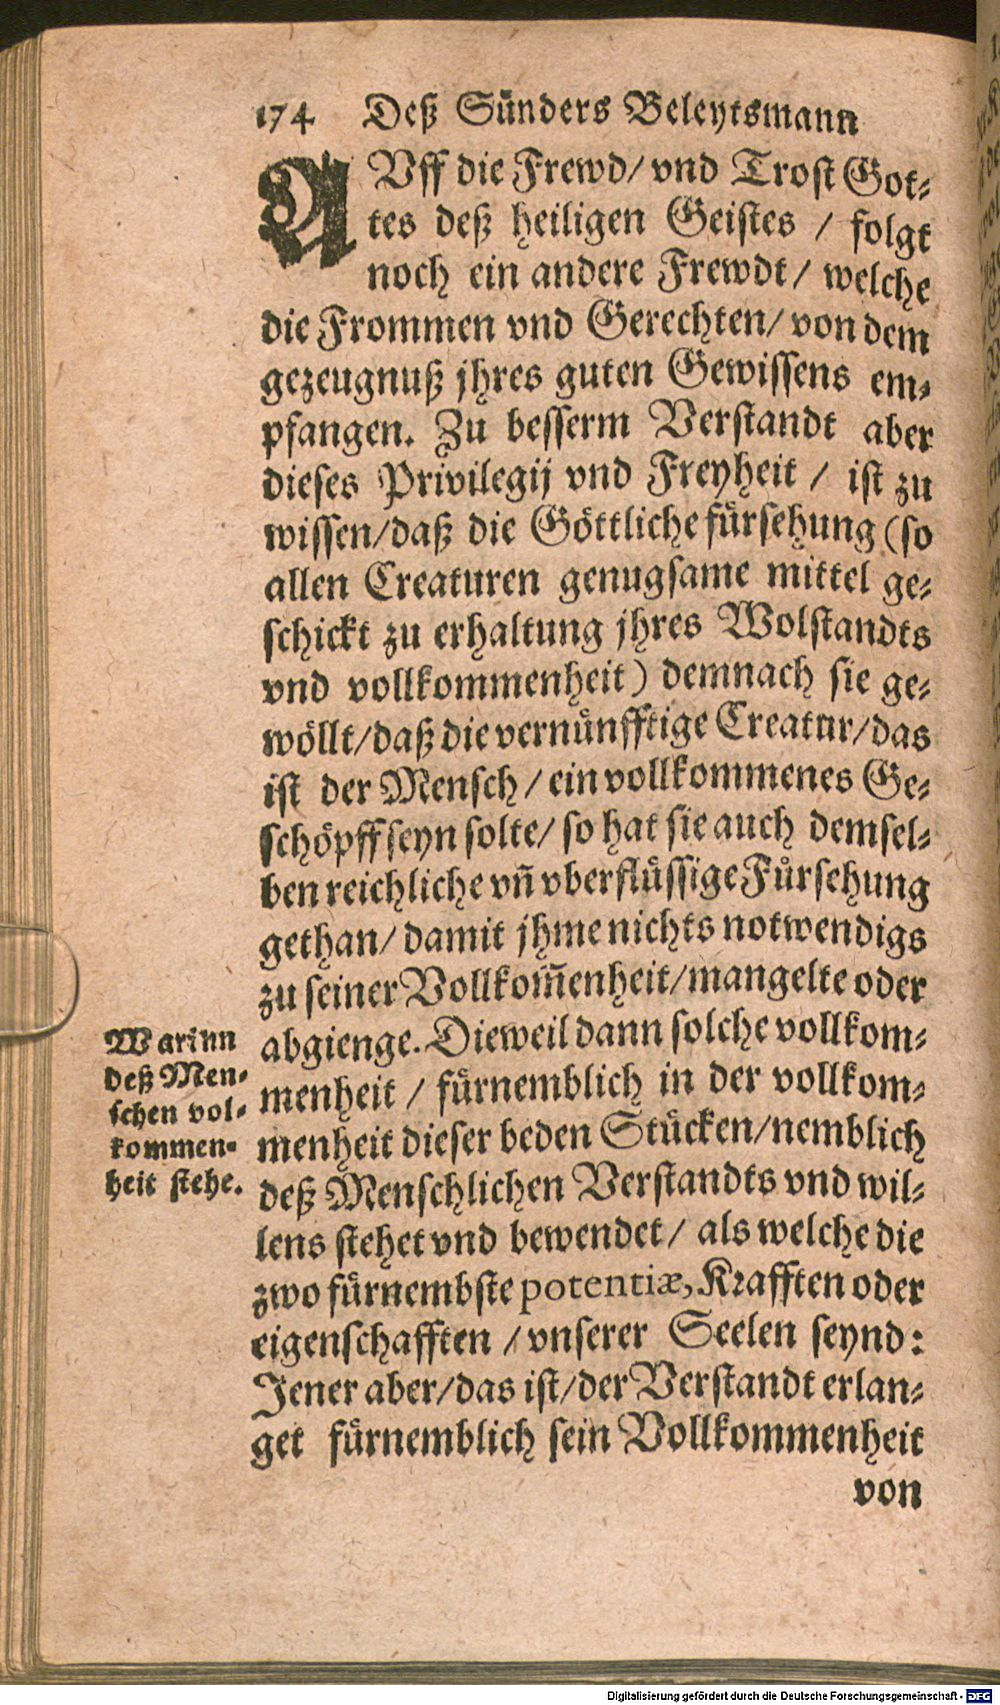 174 Deß Sünders Beleytsmann
AUff die Frewd/ vnd Trost Got⸗
tes deß heiligen Geistes / folgt
noch ein andere Frewdt/ welche
die Frommen vnd Gerechten/ von dem
gezeugnuß jhres guten Gewissens em⸗
pfangen. Zu besserm Verstandt aber
dieses Privilegij vnd Freyheit / ist zu
wissen/daß die Göttliche fürsehung (so
allen Creaturen genugsame mittel ge⸗
schickt zu erhaltung jhres Wolstandts
vnd vollkommenheit) demnach sie ge⸗
wöllt/daß die vernünfftige Creatur/das
ist der Mensch/ ein vollkommenes Ge⸗
schöpff seyn solte/ so hat sie auch demsel⸗
ben reichliche vñ vberflüssige Fürsehung
gethan/ damit jhme nichts notwendigs
zu seiner Vollkom̃enheit/mangelte oder
abgienge. Dieweil dann solche vollkom⸗
menheit / fürnemblich in der vollkom⸗
menheit dieser beden Stücken/nemblich
deß Menschlichen Verstandts vnd wil⸗
lens stehet vnd bewendet/ als welche die
zwo fürnembste potentiæ, Krafften oder
eigenschafften /vnserer Seelen seynd:
Jener aber/das ist/der Verstandt erlan⸗
get fürnemblich sein Vollkommenheit
von
Warinn
deß Men⸗
schen vol⸗
kommen⸗
heit stehe.
Digitalisierung gefördert durch die Deutsche Forschungsgemeinschaft - DFG